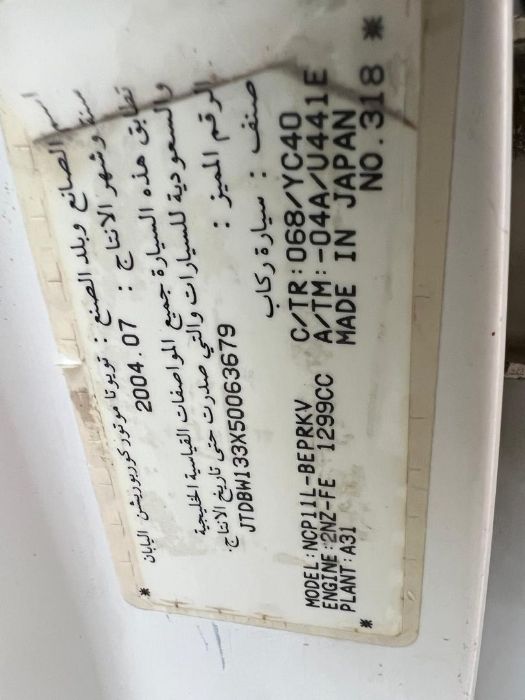 اسم الصانع وبلد الصنع : تويوتا موتور كوربوريشن اليابان
سنة وشهر الانتاج : 2004.07
تطابق هذه السيارة جميع المواصفات القياسية الخليجية
والسعودية للسيارات والتي صدرت حتى تاريخ الانتاج.
الرقم المميز : JTDBW133X50063679
صنف : سيارة ركاب
MODEL:NCP11L-BEPRKV C/TR:068/YC40
ENGINE:2NZ-FE 1299CC A/TM:-04A/U441E
PLANT:A31 MADE IN JAPAN
* NO.318 *